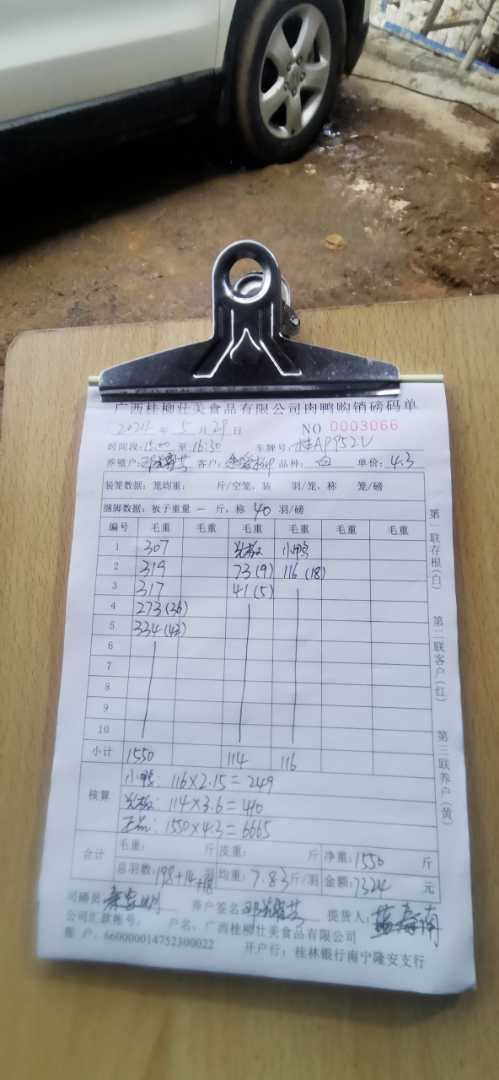 广西桂柳壮美食品有限公司肉鸭购销磅码单
5月29日 NO 0003066
时间段:15:00 至 16:30 车牌号:桂AP952V
养殖户: 客户: 品种: 白 单价: 4.3
装笼数据: 笼均重: 斤/空笼, 装 羽/笼, 称 笼/磅
捆脚数据: 板子重量 一 斤, 称 40 羽/磅
编号 毛重 毛重 毛重 毛重 毛重 毛重
1 307 小鸭
2 319 73(9) 116(18)
3 317 41(5)
4 273(36)
5 334(43)
6
7
8
9
10
小计 1550 114 116
核算 小鸭: 116×2.15=249
114×3.6=410
正品: 1550×4.3=6665
合计 毛重: 斤 皮重: 斤 净重: 1550 斤
总羽数: 198+14+18 均重: 7.83 斤/羽 金额: 7324 元
司磅员 养户签名 提货人:
公司汇款帐号: 户名: 广西桂柳壮美食品有限公司
账户: 660000014752300022 开户行: 桂林银行南宁隆安支行
第一联存根(白) 第二联客户(红) 第三联养户(黄)